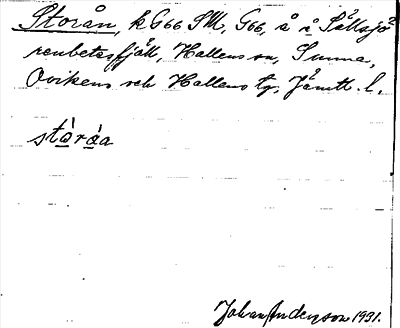 Storån, k G66 SM, G66, å i Sällsjö
renbetesfjäll, Hallens sn, Sunne,
Ovikens och Hallens tg, Jämtl. l.
stòràa
Johan Anderson 1931.